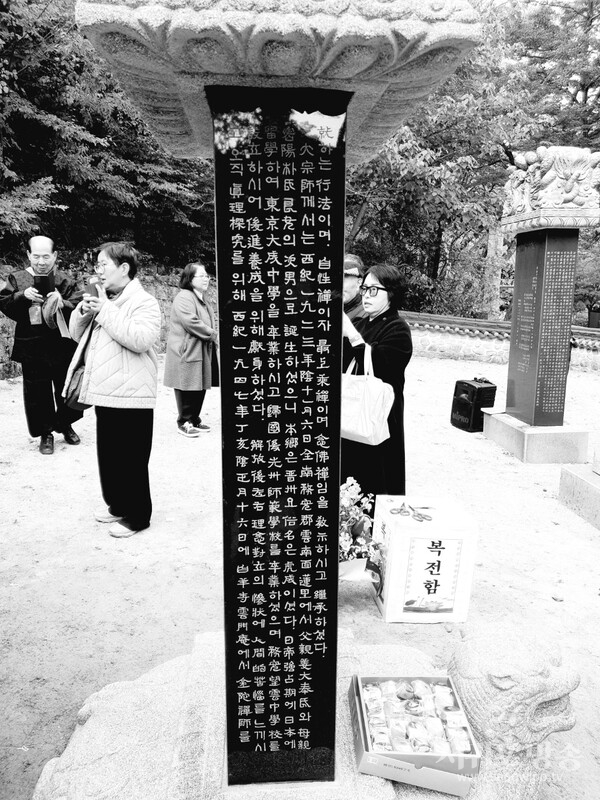 就하는 行法이며, 自性禪이자 最上乘禪이며 念佛禪임을 敎示하시고 繼承하셨다.
大宗師께서는 西紀 一九二三年 陰十一月六日 全南 務安郡 雲南面 蓮里에서 父親 姜大奉氏와 母親
密陽朴氏 良女의 次男으로 誕生하셨으니 本鄕은 晋州요 俗名은 虎成이셨다. 日帝强占期에 日本에
留學하여 東京大成中學을 卒業하시고 歸國後 光州師範學校를 卒業하셨으며 務安 望雲中學校를
設立하시어 後進養成을 위해 獻身하셨다. 解放後 左右 理念 對立의 慘狀에 人間的 苦惱를 느끼시
고 오직 眞理探究를 위해 西紀 一九四七年 丁亥 陰正月十六日에 白羊寺 雲門庵에서 金陀禪師를
복전함